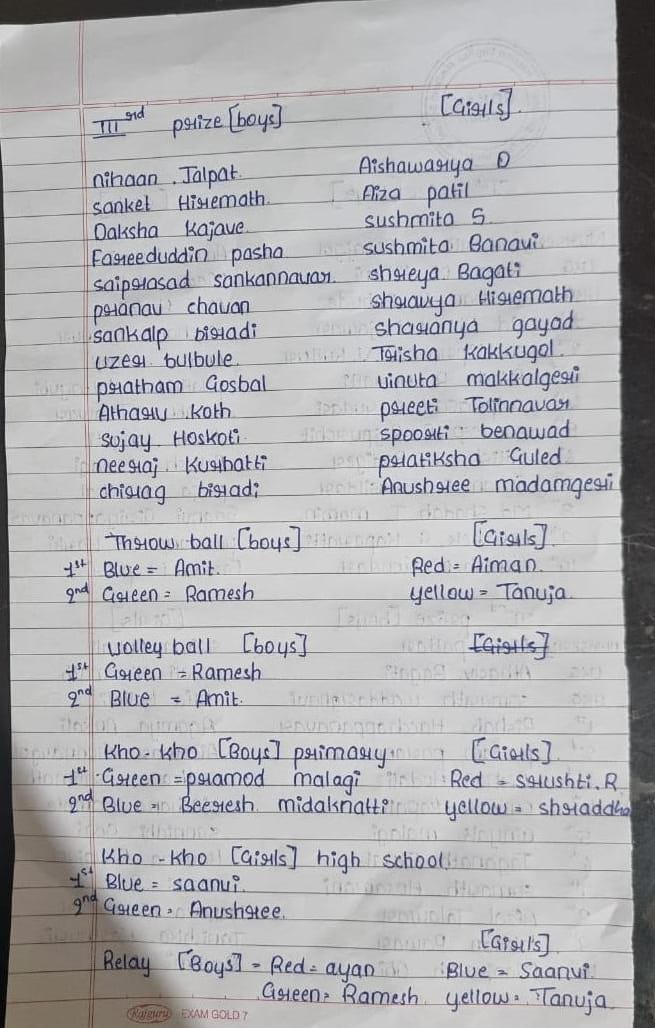 IIIrd prize [boys] [Girls].
nihaan . Jalpat. Aishawarya D
sanket Hiremath. Aiza patil
Daksha Kajave. sushmita S.
Fareeduddin pasha sushmita Banavi.
saiprasad sankannavar. shreya Bagati
pranav chavan shravya Hiremath
sankalp biradi sharanya gayad
uzer bulbule. Trisha Kakkugol.
pratham Gosbal vinuta makkalgeri
Atharv Koth preeti Tolinnavar
sujay Hoskoti spoorti benawad
neeraj Kurhatti pratiksha Guled
chirag biradi Anushree madamgeri
Throw ball [boys] [Girls].
1st Blue = Amit. Red = Aiman.
2nd Green = Ramesh yellow = Tanuja.
volley ball [boys] [Girls]
1st Green = Ramesh
2nd Blue = Amit.
Kho-kho [Boys] primary [Girls]
1st Green = pramod malagi Red = srushti.R
2nd Blue = Beeresh midaknatti yellow = shraddha
Kho-kho [Girls] high school.
1st Blue = saanvi.
2nd Green = Anushree.
[Girls]
Relay [Boys] = Red = ayan Blue = Saanvi.
Green = Ramesh yellow = Tanuja
Rajguru EXAM GOLD 7